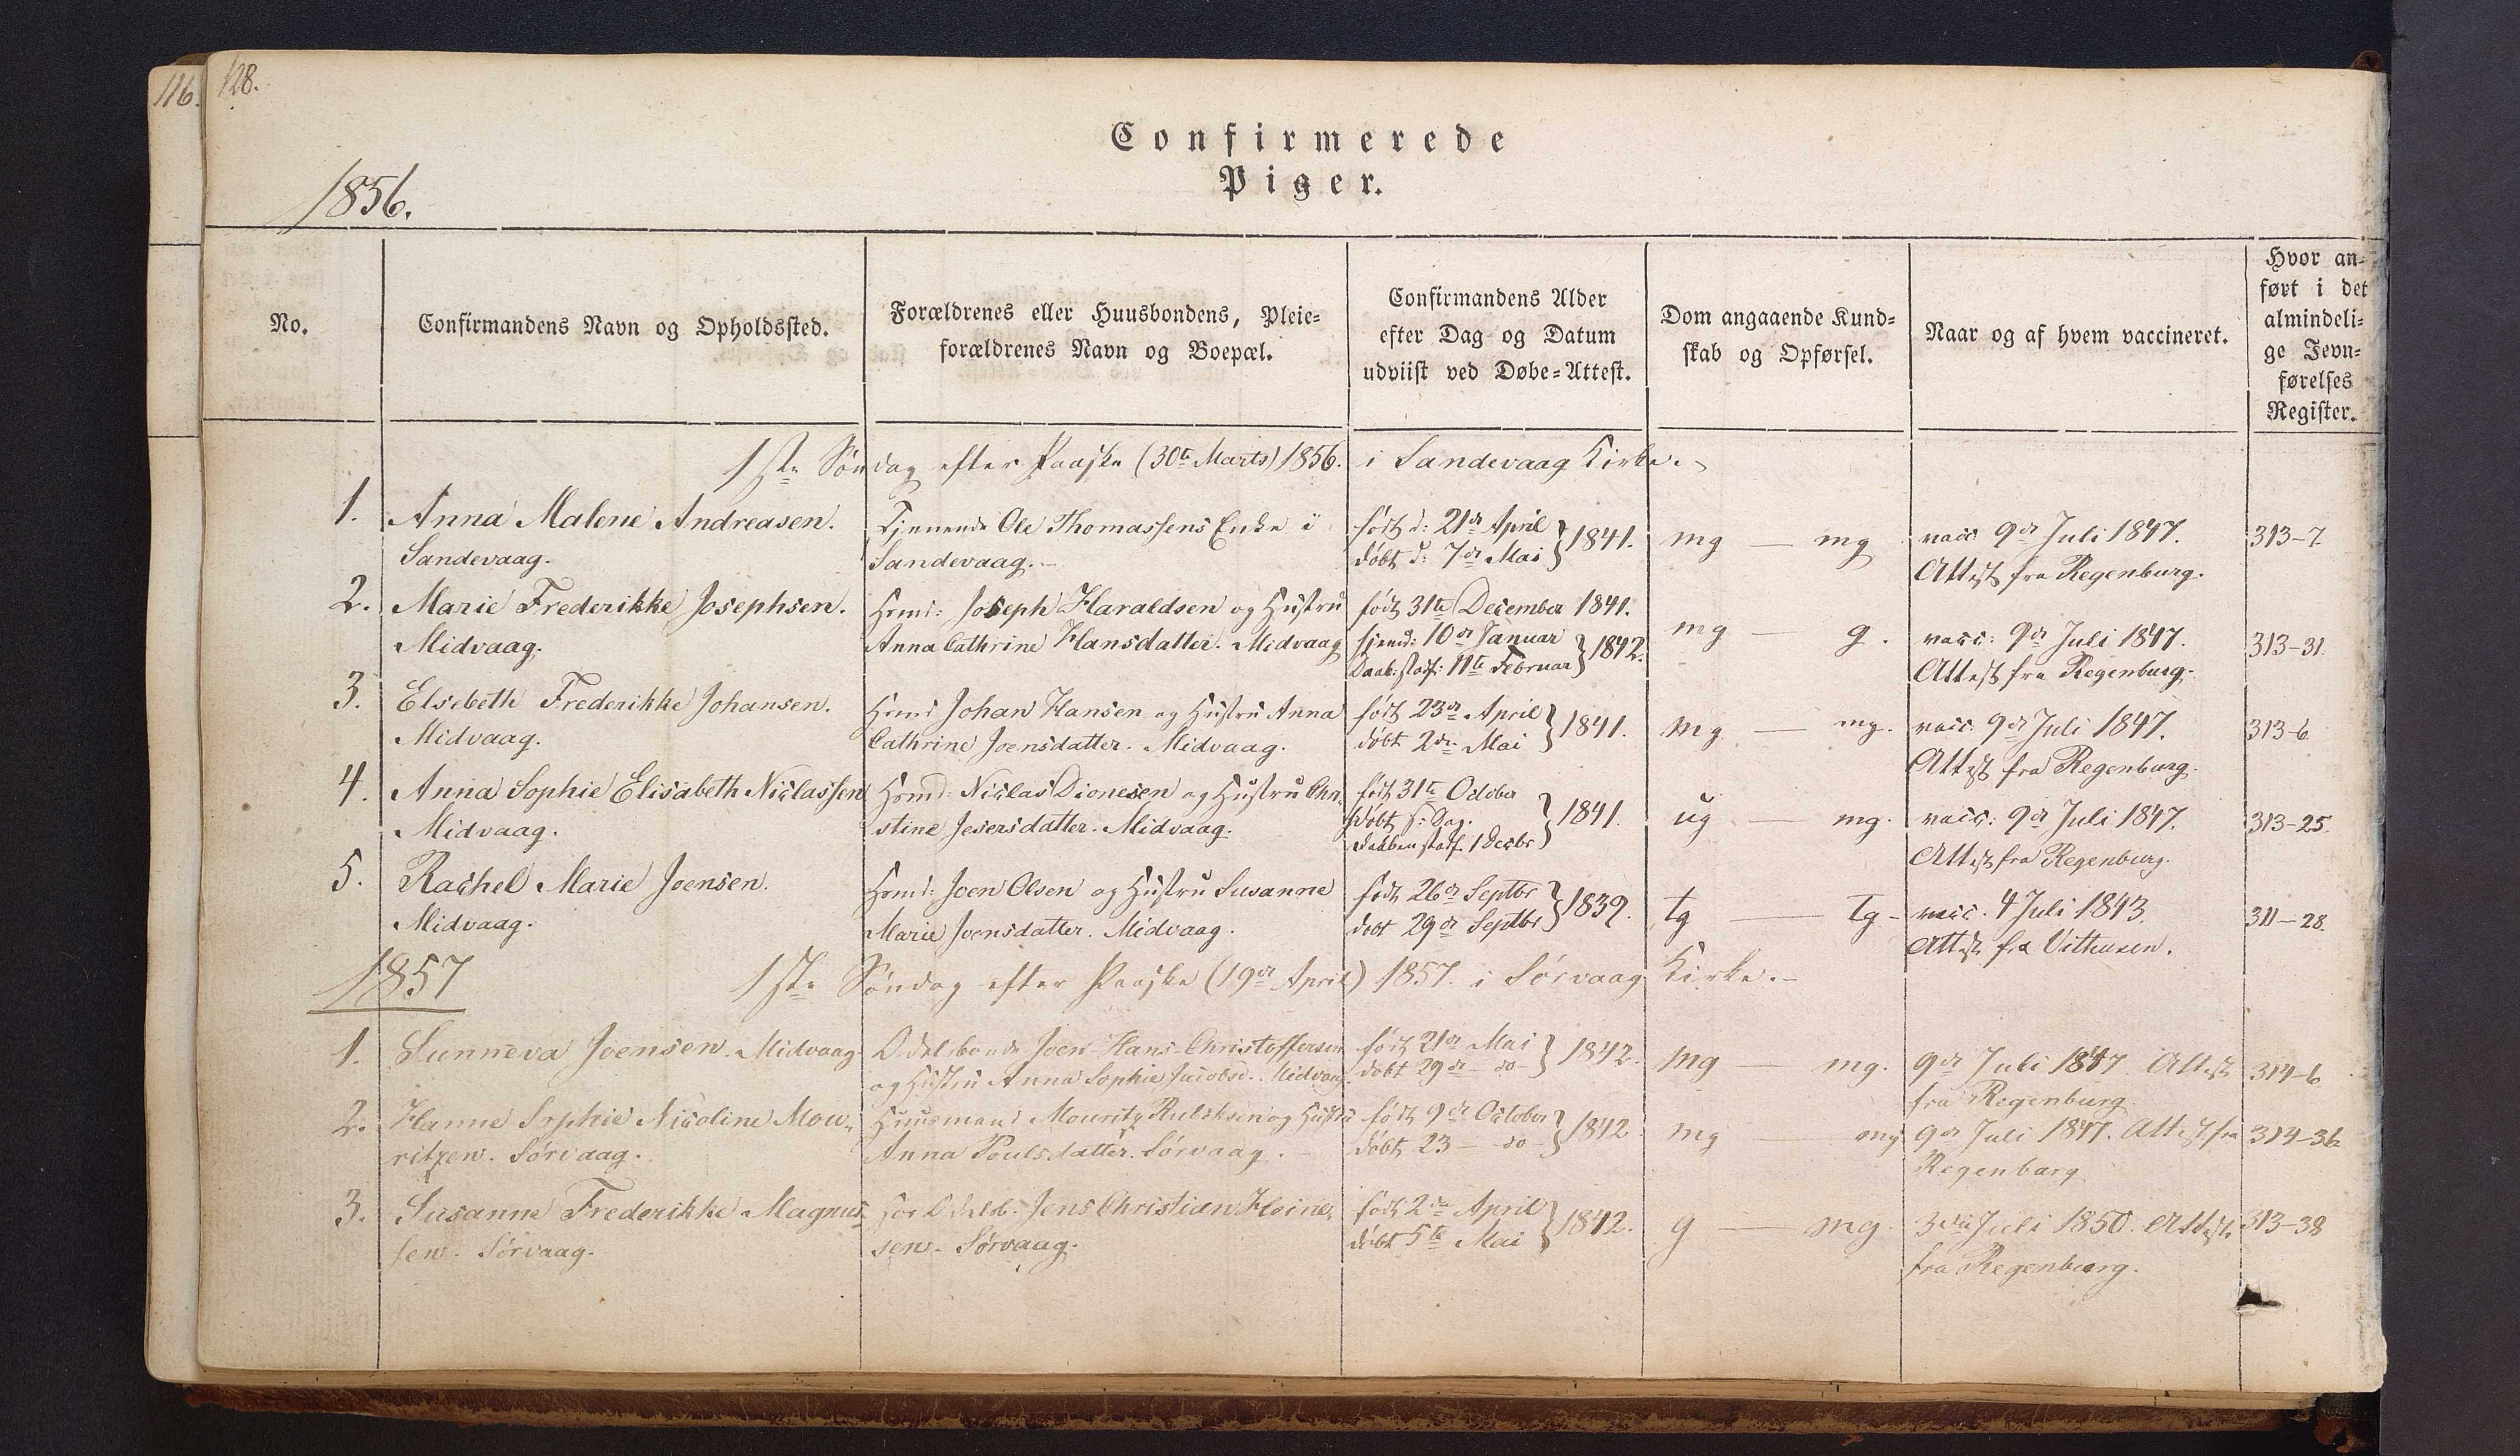 116.
128.
Confirmerede
Piger.
1856.
No.
Confirmandens Navn og Opholdssted.
Forældrenes eller Huusbondens, Pleie-
forældrenes Navn og Boepæl.
Confirmandens Alder
efter Dag og Datum
udviist ved Døbe-Attest.
Dom angaaende Kund-
skab og Opførsel.
Naar og af hvem vaccineret.
Hvor an-
ført i det
almindeli-
ge Jevn-
førelses
Register.
1ste Søndag efter Paaske (30te Marts) 1856. i Sandevaag Kirke.
1. Anna Malene Andreasen. Tjenende Ole Thomassens Enke i født d: 21de April } 1841. mg — mg vacc 9de Juli 1847. 313-7
Sandevaag. Sandevaag. døbt d: 7de Mai Attest fra Regenburg.
2. Marie Frederikke Josephsen. Hrmd: Joseph Haraldsen og Hustru født 31te December 1841. mg — g. vacc: 9de Juli 1847. 313-31.
Midvaag. Anna Cathrine Hansdatter. Midvaag hjemd: 10de Januar } 1842. Attest fra Regenburg.
Daab. stadf: 11te Februar
3. Elsebeth Frederikke Johansen. Hrmd Johan Hansen og Hustru Anna født 23de April } 1841. mg — mg. vacc. 9de Juli 1847. 313-6
Midvaag. Cathrine Joensdatter. Midvaag. døbt 2den Mai Attest fra Regenburg.
4. Anna Sophie Elisabeth Niclassen Hrmd: Niclas Dionesen og Hustru Chri- født 31te October } 1841. ug — mg. vacc: 9de Juli 1847. 313-25.
Midvaag. stine Jesersdatter. Midvaag. døbt s: Dag. Attest fra Regenburg.
Daaben stadf. 1 Decbr
5. Rachel Marie Joensen. Hrmd: Joen Olsen og Hustru Susanne født 26de Septbr } 1839. tg — tg - vacc. 4 Juli 1843 311-28.
Midvaag. Marie Joensdatter. Midvaag. døbt 29de Septbr Attest fra Vithusen.
1857 1ste Søndag efter Paaske (19de April) 1857. i Sørvaag Kirke.-
1. Sunneva Joensen. Midvaag. Odelsbonde Joen Hans Christoffersen født 21de Mai } 1842. mg mg. 9de Juli 1847 Attest 314-6
og Hustru Anna Sophie Jacobsd. Midvaag. døbt 29de - do - fra Regenburg.
2. Hanne Sophie Nicoline Mou- Huusmand Mouritz Rubeksen og Hustru født 9de October } 1842 mg — mg 9de Juli 1847. Attest fra 314-36
ritzen. Sørvaag. Anna Poulsdatter. Sørvaag. døbt 23 - do Regenburg
3. Susanne Frederikke Magnus- hos Odelsb. Jens Christian Heine- født 2den April } 1842. g — mg. 3die Juli 1850. Attest 313-38
sen. Sørvaag. sen. Sørvaag. døbt 5te Mai fra Regenburg.